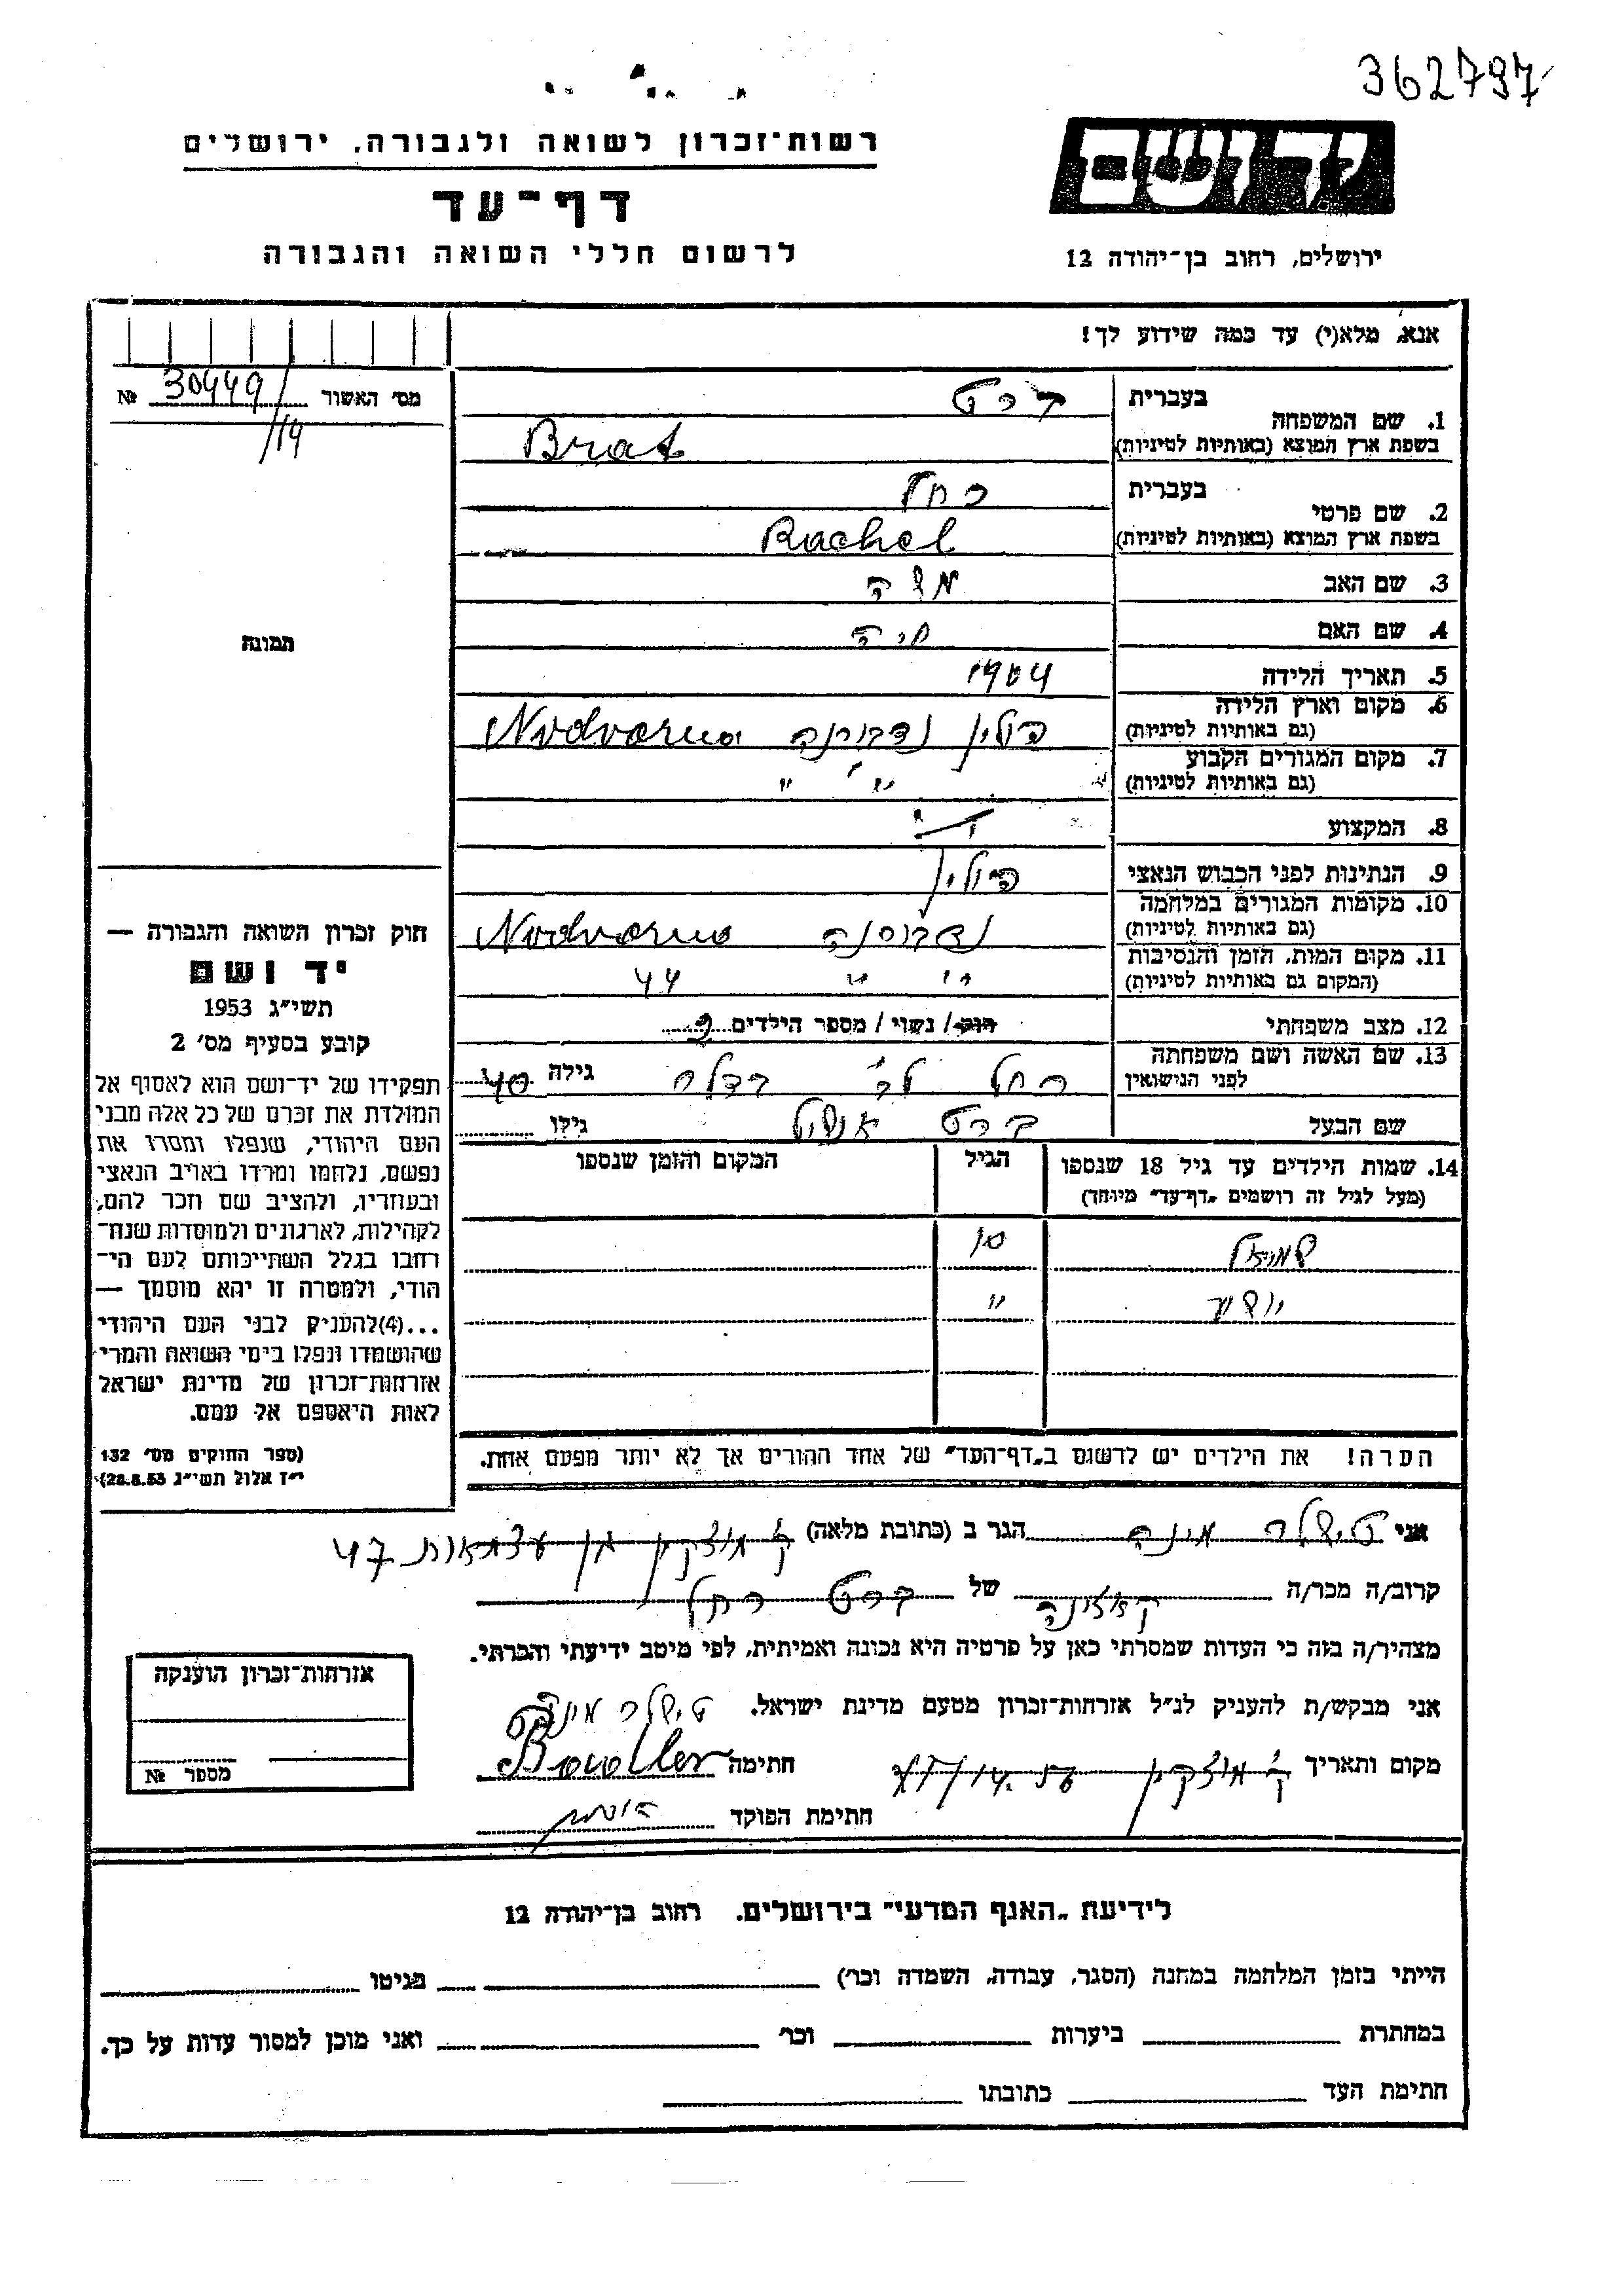 362797
רשות־זכרון לשואה ולגבורה, ירושלים
יד ושם
דף־עד
לרשום חללי השואה והגבורה
ירושלים, רחוב בן־יהודה 12
אנא, מלא(י) עד כמה שידוע לך!
מס׳ האשור 30449/14 №
תמונה
1. שם המשפחה בעברית ברט
בשפת ארץ המוצא (באותיות לטיניות) Brat
2. שם פרטי בעברית רחל
בשפת ארץ המוצא (באותיות לטיניות) Rachel
3. שם האב משה
4. שם האם חיה
5. תאריך הלידה 1904
6. מקום וארץ הלידה (גם באותיות לטיניות) פולין נדבורנה Nadvorna
7. מקום המגורים הקבוע (גם באותיות לטיניות) " "
8. המקצוע
9. הנתינות לפני הכבוש הנאצי פולין
10. מקומות המגורים במלחמה (גם באותיות לטיניות) נדבורנה Nadvorna
11. מקום המות, הזמן והנסיבות (המקום גם באותיות לטיניות) " "
12. מצב משפחתי רווק / נשוי / מספר הילדים 2
13. שם האשה ושם משפחתה לפני הנישואין רחל לב׳ גילה 40
שם הבעל ברט אנשיל גילו
14. שמות הילדים עד גיל 18 שנספו (מעל לגיל זה רושמים „דף־עד" מיוחד) הגיל המקום והזמן שנספו
שמואל 10
"
הערה! את הילדים יש לרשום ב„דף־העד" של אחד ההורים אך לא יותר מפעם אחת.
חוק זכרון השואה והגבורה —
יד ושם
תשי״ג 1953
קובע בסעיף מס׳ 2
תפקידו של יד־ושם הוא לאסוף אל
המולדת את זכרם של כל אלה מבני
העם היהודי, שנפלו ומסרו את
נפשם, נלחמו ומרדו באויב הנאצי
ובעוזריו, ולהציב שם וזכר להם,
לקהילות, לארגונים ולמוסדות שנח־
רבו בגלל השתייכותם לעם הי־
הודי, ולמטרה זו יהא מוסמך —
...(4) להעניק לבני העם היהודי
שהושמדו ונפלו בימי השואה והמרי
אזרחות־זכרון של מדינת ישראל
לאות היאספם אל עמם.
(ספר החוקים מס׳ 132
י״ז אלול תשי״ג 28.8.53)
אני מינה הגר ב (כתובת מלאה) ק׳ מוצקין עצמאות 47
קרוב/ה מכר/ה של ברט רחל
מצהיר/ה בזה כי העדות שמסרתי כאן על פרטיה היא נכונה ואמיתית, לפי מיטב ידיעתי והכרתי.
אני מבקש/ת להעניק לנ״ל אזרחות־זכרון מטעם מדינת ישראל. מינה
מקום ותאריך ק׳ מוצקין חתימה
חתימת הפוקד
אזרחות־זכרון הוענקה
מספר №
לידיעת „האגף המדעי" בירושלים. רחוב בן־יהודה 12
הייתי בזמן המלחמה במחנה (הסגר, עבודה, השמדה וכו׳) בגיטו
במחתרת ביערות וכו׳ ואני מוכן למסור עדות על כך.
חתימת העד כתובתו